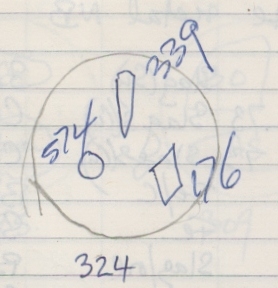 339
574
176
324